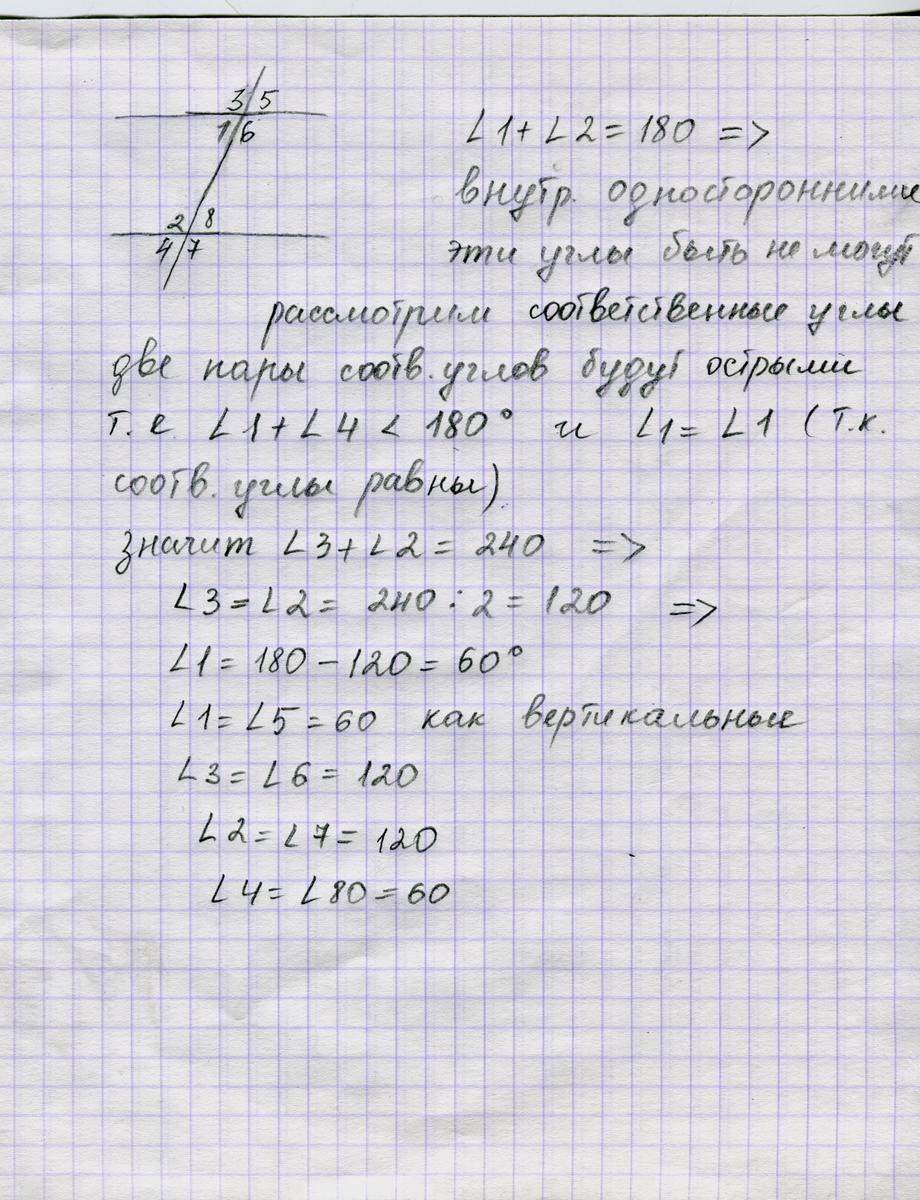 3 5
1 6
2 8
4 7
∠1+∠2=180 =>
внутр. односторонними
эти углы быть не могут
рассмотрим соответственные углы
две пары соотв. углов будут острыми
т.е. ∠1+∠4 < 180° и ∠1=∠1 (т.к.
соотв. углы равны)
значит ∠3+∠2=240 =>
∠3=∠2= 240:2=120 =>
∠1=180-120=60°
∠1=∠5=60 как вертикальные
∠3=∠6=120
∠2=∠7=120
∠4=∠80=60